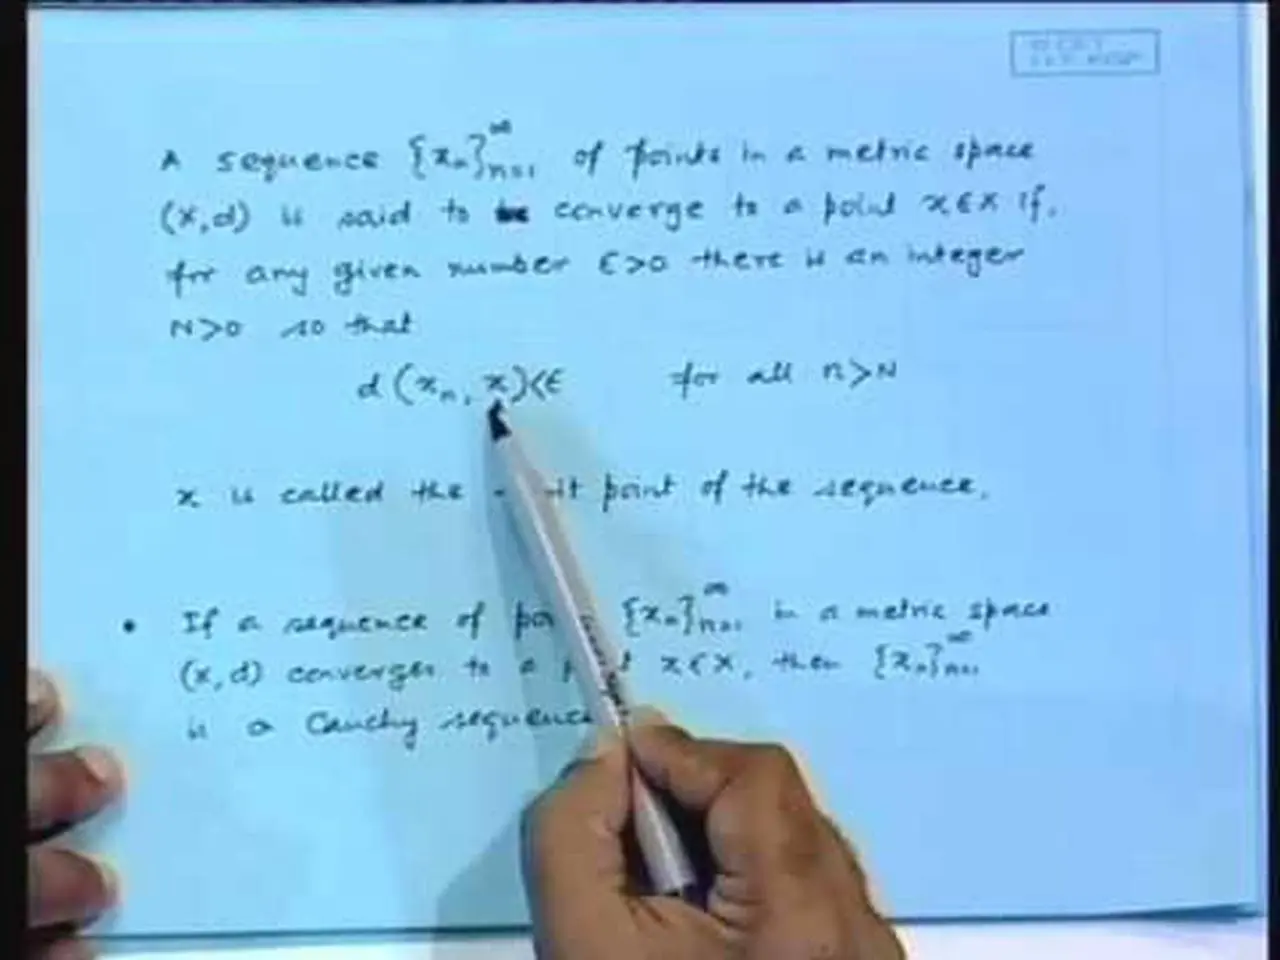 A sequence {xₙ}ₙ₌₁^∞ of points in a metric space
(X,d) is said to converge to a point x∈X if,
for any given number ϵ>0 there is an integer
N>0 so that
d(xₙ, x)<ϵ for all n>N
x is called the point of the sequence.
• If a sequence of {xₙ}ₙ₌₁^∞ in a metric space
(X,d) converges to a x∈X, then {xₙ}ₙ₌₁^∞
is a Cauchy sequence